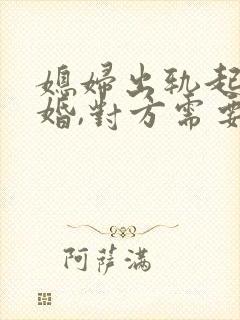 媳婦出軌起
婚,對方需要
阿薩滿